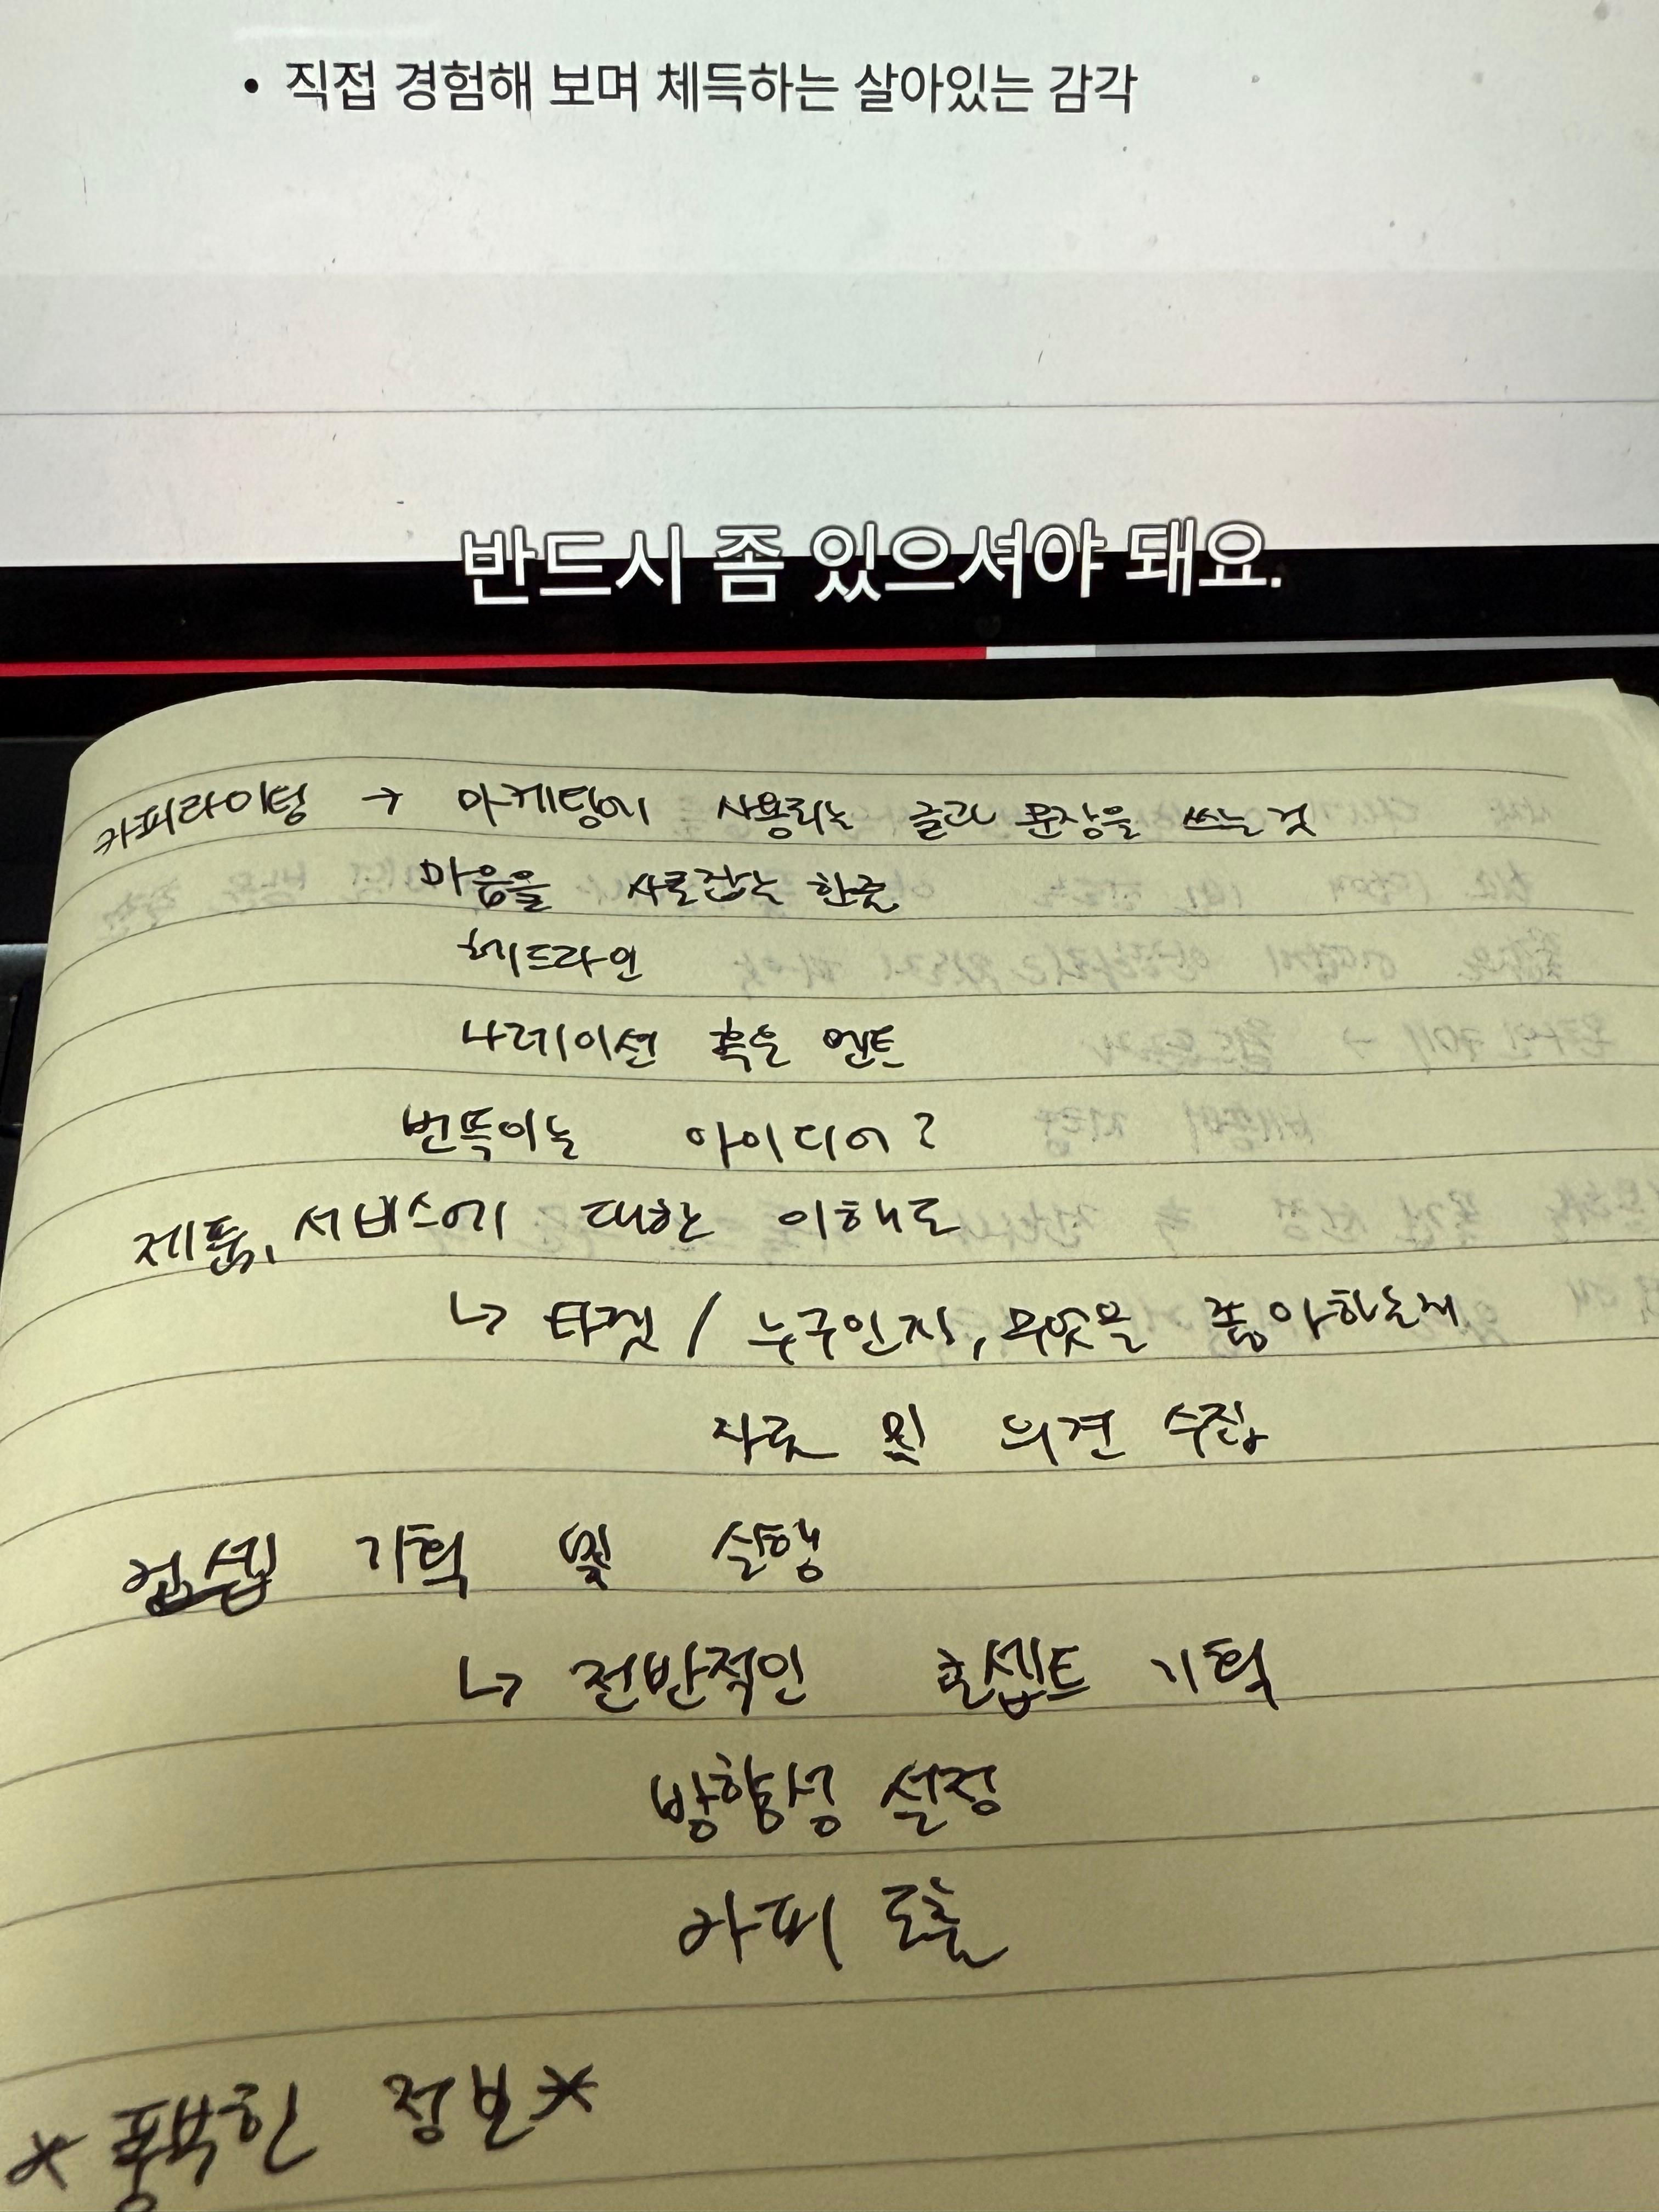 • 직접 경험해 보며 체득하는 살아있는 감각
반드시 좀 있으셔야 돼요.
카피라이팅 → 마케팅에 사용되는 글과 문장을 쓰는 것
마음을 사로잡는 한줄
헤드라인
나레이션 혹은 멘트
번뜩이는 아이디어?
제품, 서비스에 대한 이해도
↳ 타겟 / 누구인지, 무엇을 좋아하는지
자료 및 의견 수집
컨셉 기획 및 실행
↳ 전반적인 콘셉트 기획
방향성 설정
카피 도출
* 풍부한 정보 *